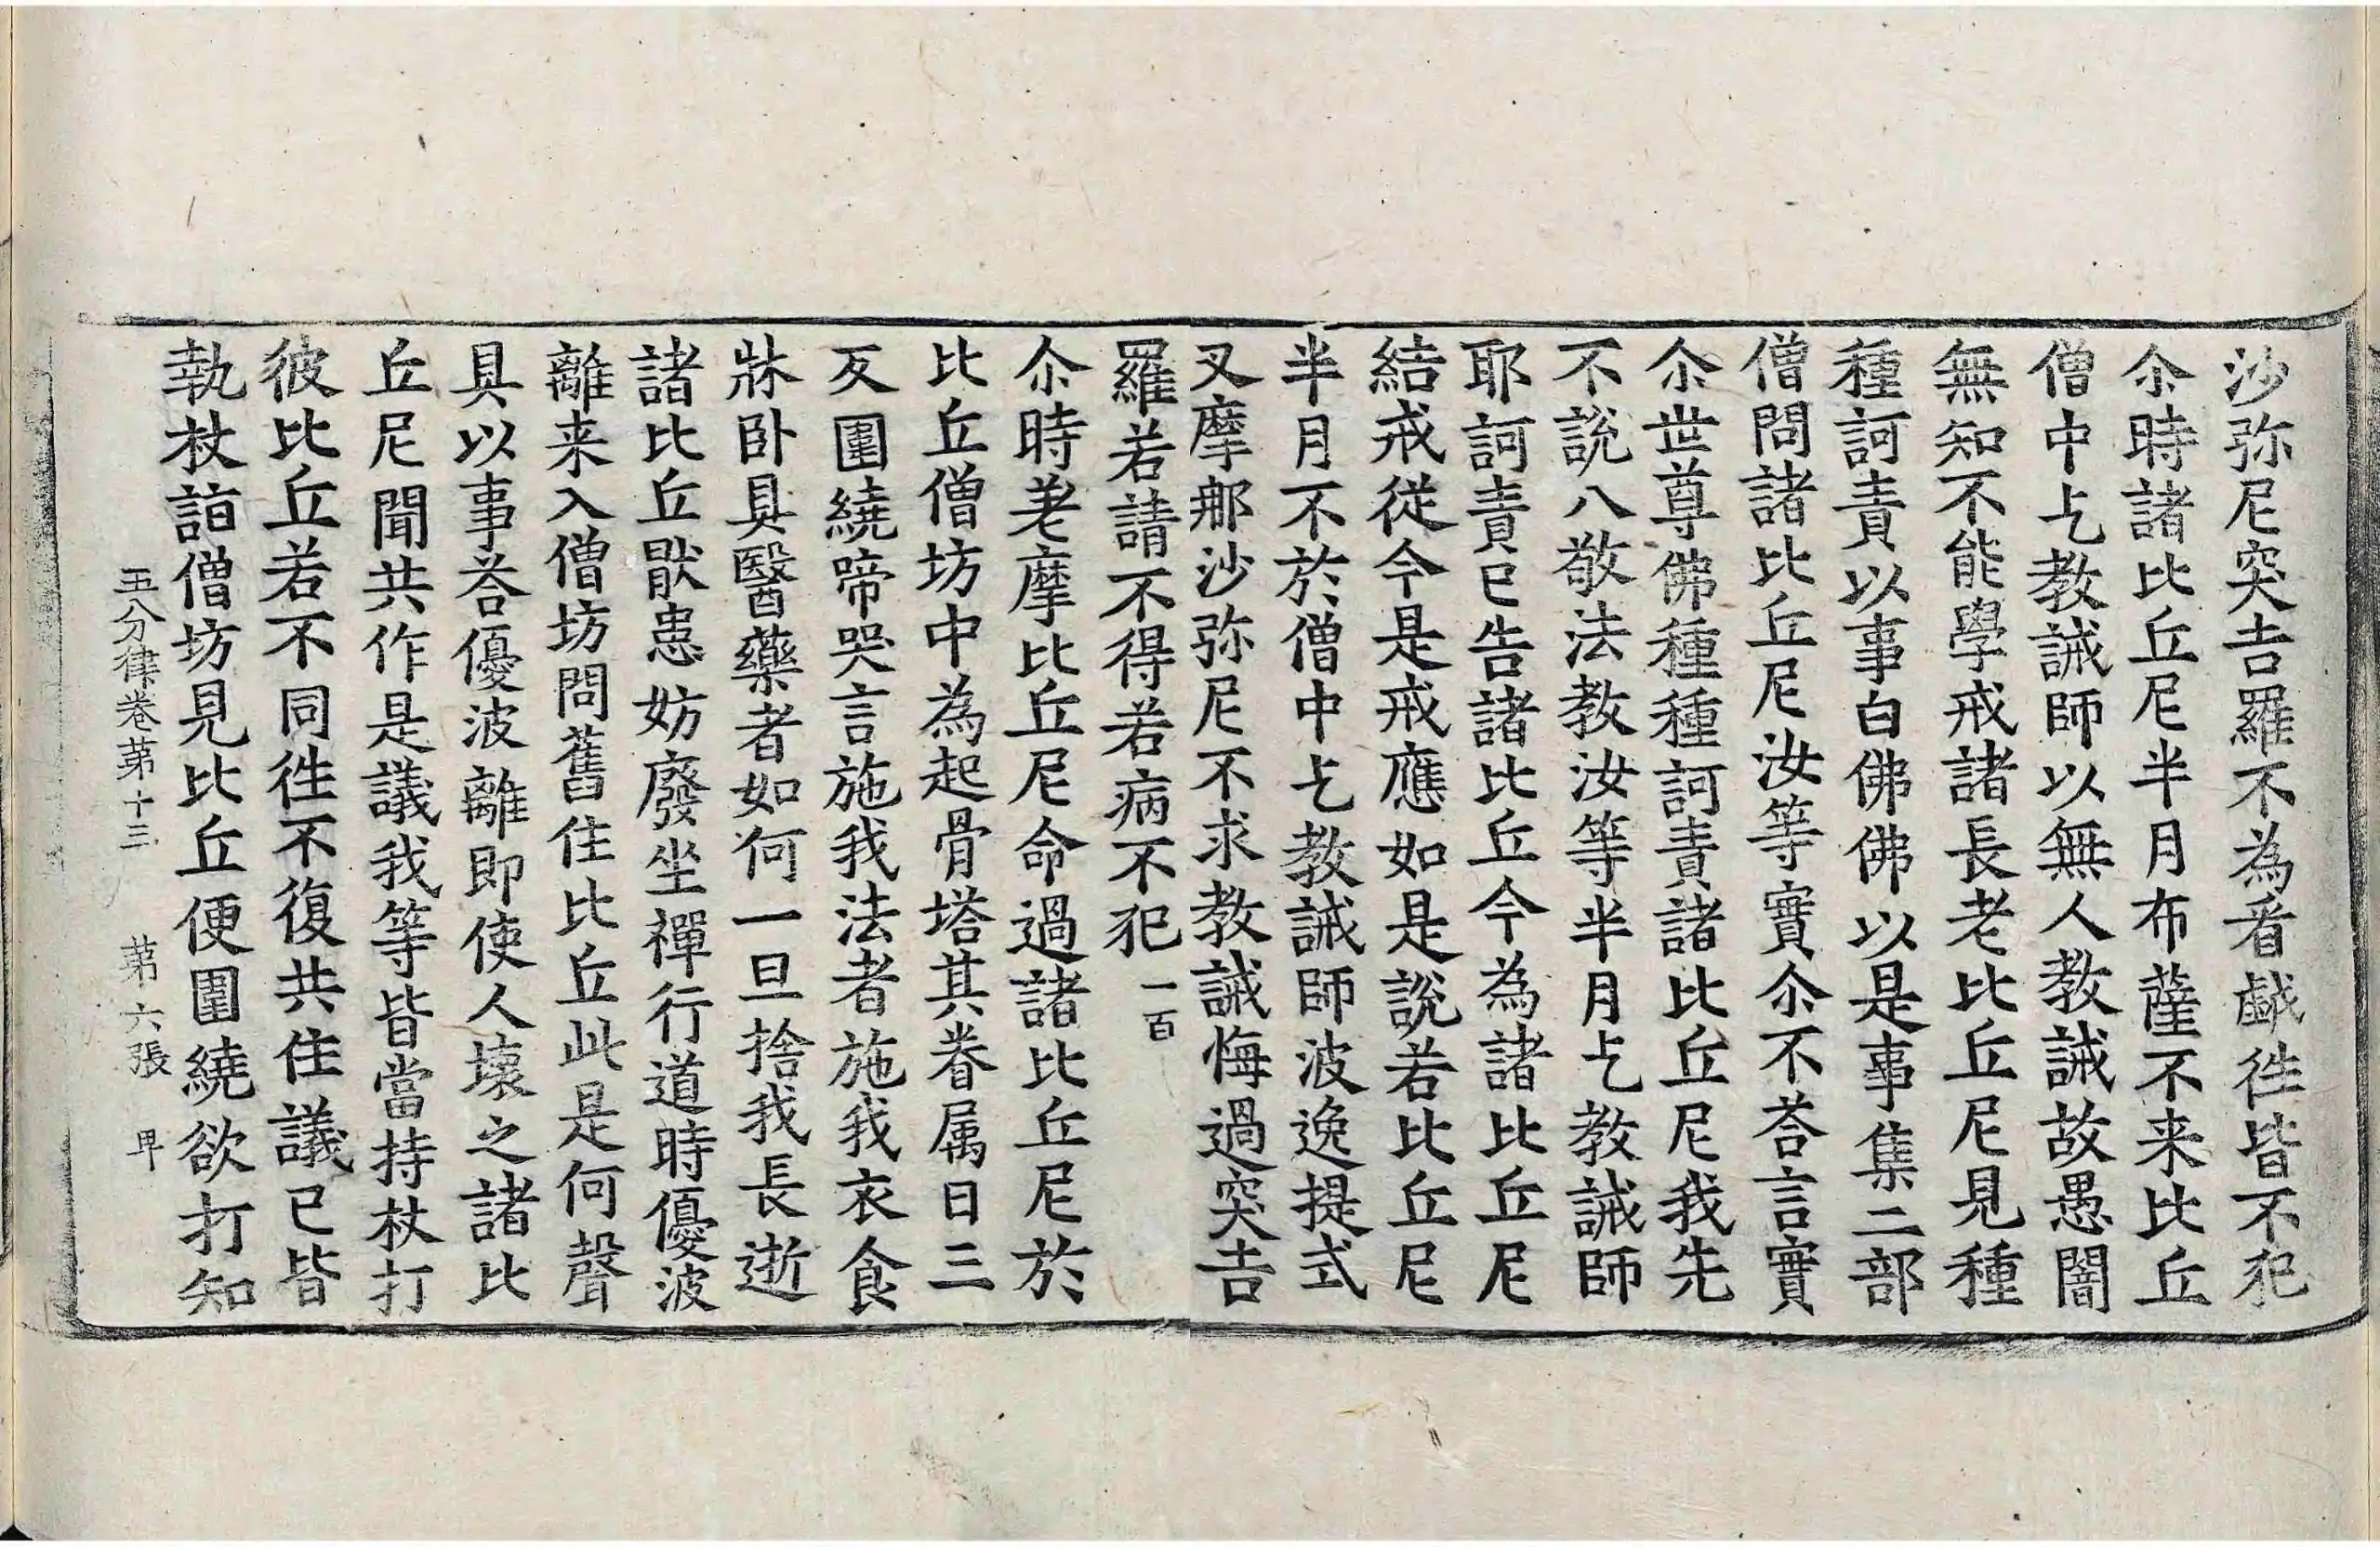 沙弥尼突吉羅不為看戱徃皆不犯
尒時諸比丘尼半月布薩不来比丘
僧中乞教誡師以無人教誡故愚闇
無知不能學戒諸長老比丘尼見種
種訶責以事白佛佛以是事集二部
僧問諸比丘尼汝等實尒不荅言實
尒世尊佛種種訶責諸比丘尼我先
不說八敬法教汝等半月乞教誡師
耶訶責已告諸比丘今為諸比丘尼
結戒從今是戒應如是說若比丘尼
半月不於僧中乞教誡師波逸提式
叉摩那沙弥尼不求教誡悔過突吉
羅若請不得若病不犯一百
尒時老摩比丘尼命過諸比丘尼於
比丘僧坊中為起骨塔其眷属日三
反圍繞啼哭言施我法者施我衣食
牀卧具醫藥者如何一旦捨我長逝
諸比丘猒患妨廢坐禪行道時優波
離来入僧坊問舊住比丘此是何聲
具以事荅優波離即使人壞之諸比
丘尼聞共作是議我等皆當持杖打
彼比丘若不同徃不復共住議已皆
執杖詣僧坊見比丘便圍繞欲打知
五分律卷第十三 第六張 卑